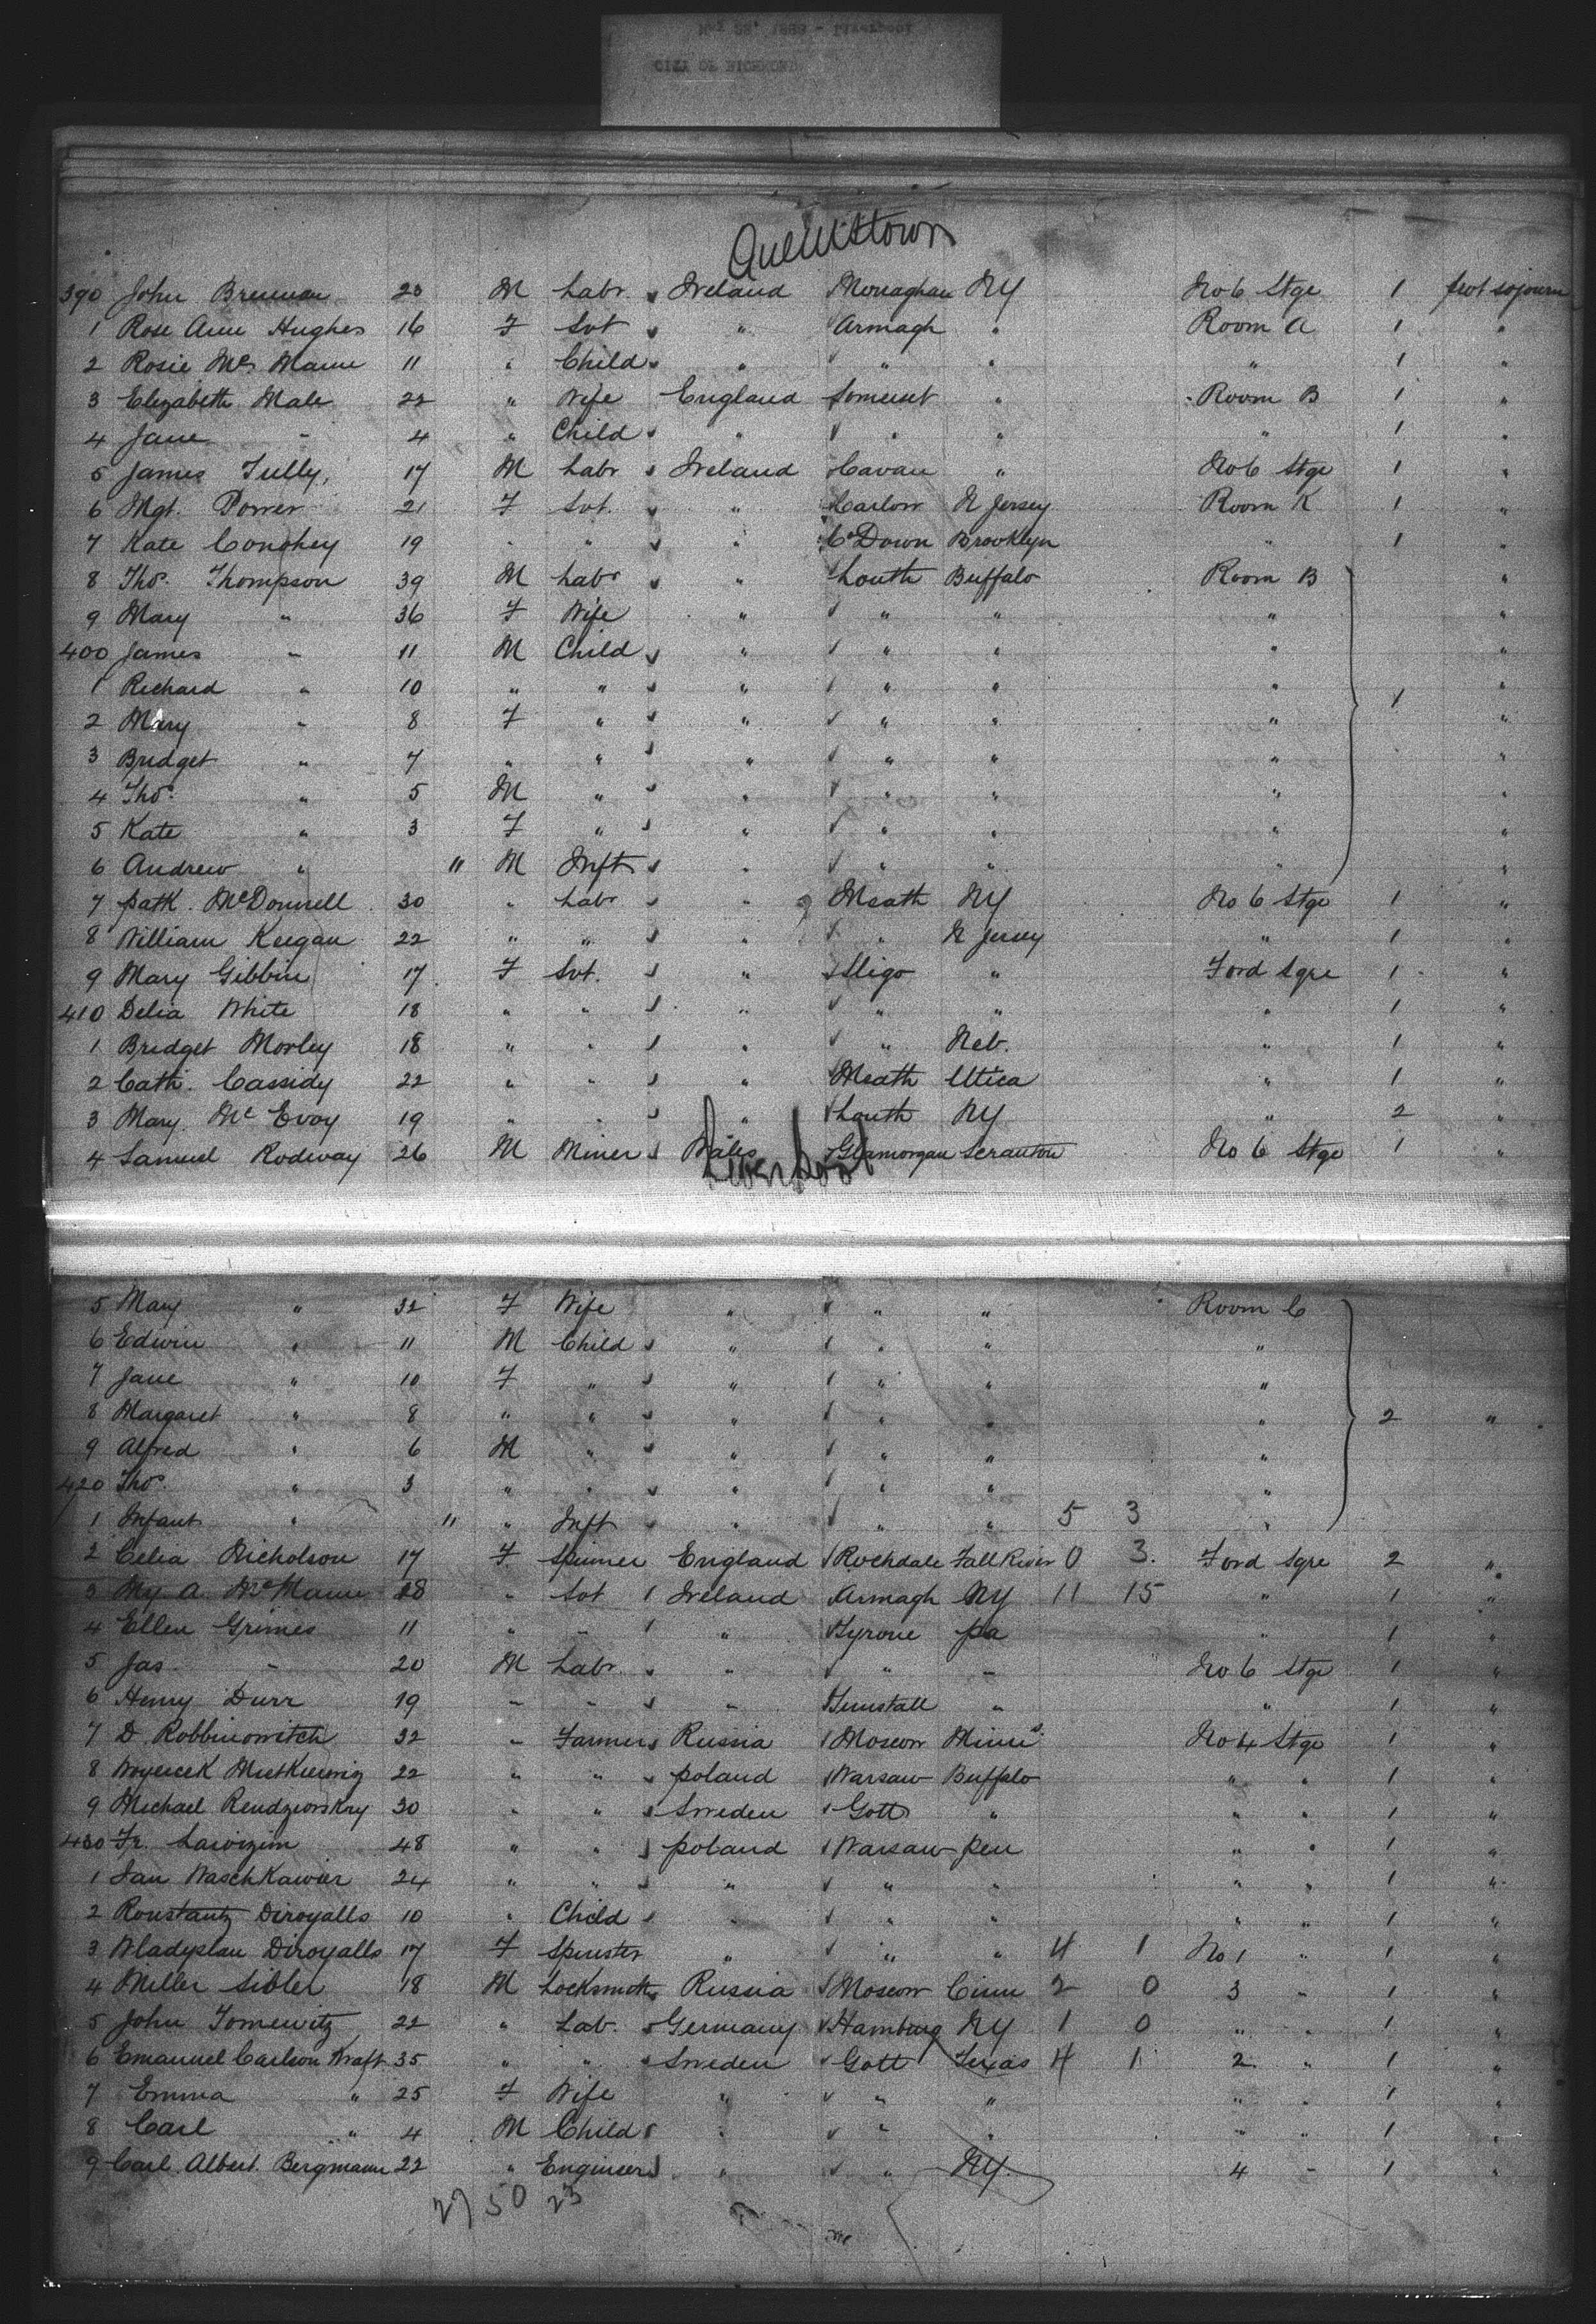 CITY OF RICHMOND
Queenstown
390 John Brennan 23 M Labr Ireland Monaghan NY No 6 Stge 1 prot sojourn
1 Rose Ann Hughes 16 F Svt " Armagh " Room A 1 "
2 Rosie Mc Mann 11 " Child " " " " 1 "
3 Elizabeth Male 22 " Wife England Somerset " Room B 1 "
4 Jane " 4 " Child " " " " 1 "
5 James Tully, 17 M Labr Ireland Cavan " No 6 Stge 1 "
6 Mgt. Power 21 F Svt. " Carlow N Jersey Room K 1 "
7 Kate Conghey 19 " " " Co Down Brooklyn " 1 "
8 Thos. Thompson 39 M Labr " Louth Buffalo Room B "
9 Mary " 36 F Wife " " " " "
400 James " 11 M Child " " " " "
1 Richard " 10 " " " " " " 1 "
2 Mary " 8 F " " " " " "
3 Bridget " 7 " " " " " " "
4 Thos. " 5 M " " " " " "
5 Kate " 3 F " " " " " "
6 Andrew " " M Inft " " " " "
7 Patk. McDonnell 30 " Labr " Meath NY No 6 Stge 1 "
8 William Keegan 22 " " " " N Jersey " 1 "
9 Mary Gibbin 17 F Svt. " Sligo " Ford Sqre 1 "
410 Delia White 18 " " " " " " 1 "
1 Bridget Morley 18 " " " " Neb. " 1 "
2 Cath. Cassidy 22 " " " Meath Utica " 1 "
3 Mary Mc Evoy 19 " " " Louth NY " 2 "
4 Samuel Rodway 26 M Miner Wales Glamorgan Scranton No 6 Stge 1 "
Liverpool
5 Mary " 32 F Wife " " " Room C
6 Edwin " 11 M Child " " " "
7 Jane " 10 F " " " " "
8 Margaret " 8 " " " " " " 2 "
9 Alfred " 6 M " " " " "
420 Thos. " 3 " " " " " "
1 Infant " " " Inft " " " 5 3 "
2 Celia Nicholson 17 F Spinner England Rochdale Fall River 0 3. Ford Sqre 2 "
3 My. A. McMann 28 " Svt Ireland Armagh NY 11 15 " 1 "
4 Ellen Grimes 11 " " " Tyrone Pa " 1 "
5 Jas. " 20 M Labr. " " " No 6 Stge 1 "
6 Henry Durr 19 " " " Tunstall " " 1 "
7 D Robbinowitch 32 " Farmer Russia Moscow Minn No 4 Stge 1 "
8 22 " " Poland Warsaw Buffalo " " 1 "
9 Michael Rendzworskry 30 " " Sweden Gott " " " 1 "
430 Fr. 48 " " Poland Warsaw Pen " " 1 "
1 Jan Waschkawier 24 " " " " " " " 1 "
2 Ronstantz Diroyalls 10 " Child " " " " " 1 "
3 Wladyslau Diroyalls 17 F Spinster " " " 4 1 No 1 " 1 "
4 Miller Sibler 18 M Locksmith Russia Moscow Cinn 2 0 3 " 1 "
5 John Tomewitz 22 " Lab. Germany Hamburg NY 1 0 " " 1 "
6 Emanuel Carlson Kraft 35 " " Sweden Gott Texas 4 1 2 " 1 "
7 Emma " 25 F Wife " " " " " 1 "
8 Carl " 4 M Child " " " " " 1 "
9 Carl Albert Bergmann 22 " Engineer " " NY. 4 " 1 "
27 50 23